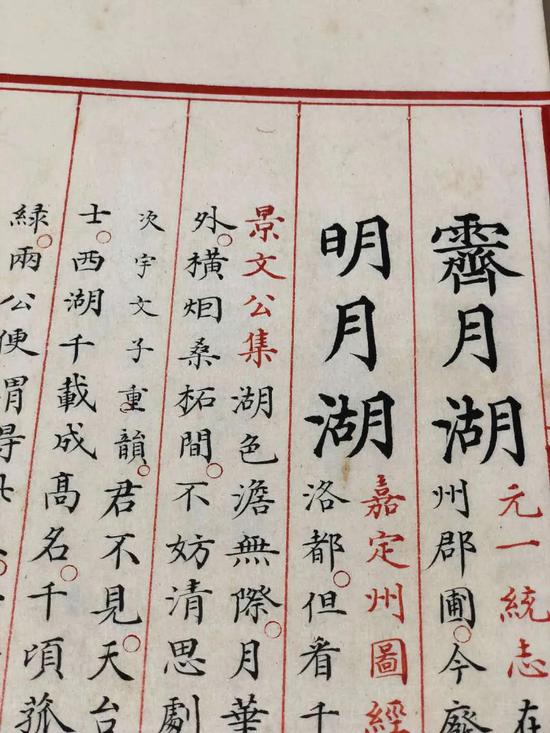 霽月湖
元一統志在
州郡圃。今廢
明月湖
嘉定州圖經
洛都。但看千
景文公集湖色澹無際。月華
外。橫烟桑柘間。不妨清思劇
次宇文子重韻。君不見。天台
士。西湖千載成高名。千頃菰
緑。兩公便謂得